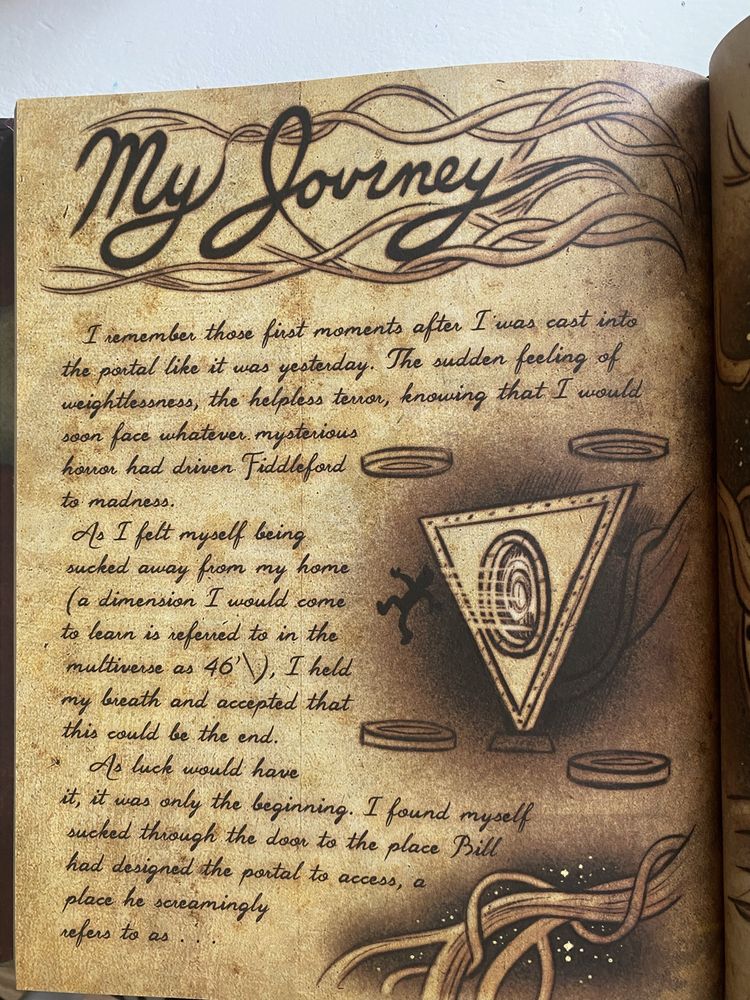 My Journey
I remember those first moments after I was cast into
the portal like it was yesterday. The sudden feeling of
weightlessness, the helpless terror, knowing that I would
soon face whatever mysterious
horror had driven Fiddleford
to madness.
As I felt myself being
sucked away from my home
(a dimension I would come
to learn is referred to in the
multiverse as 46'\), I held
my breath and accepted that
this could be the end.
As luck would have
it, it was only the beginning. I found myself
sucked through the door to the place Bill
had designed the portal to access, a
place he screamingly
refers to as . . .